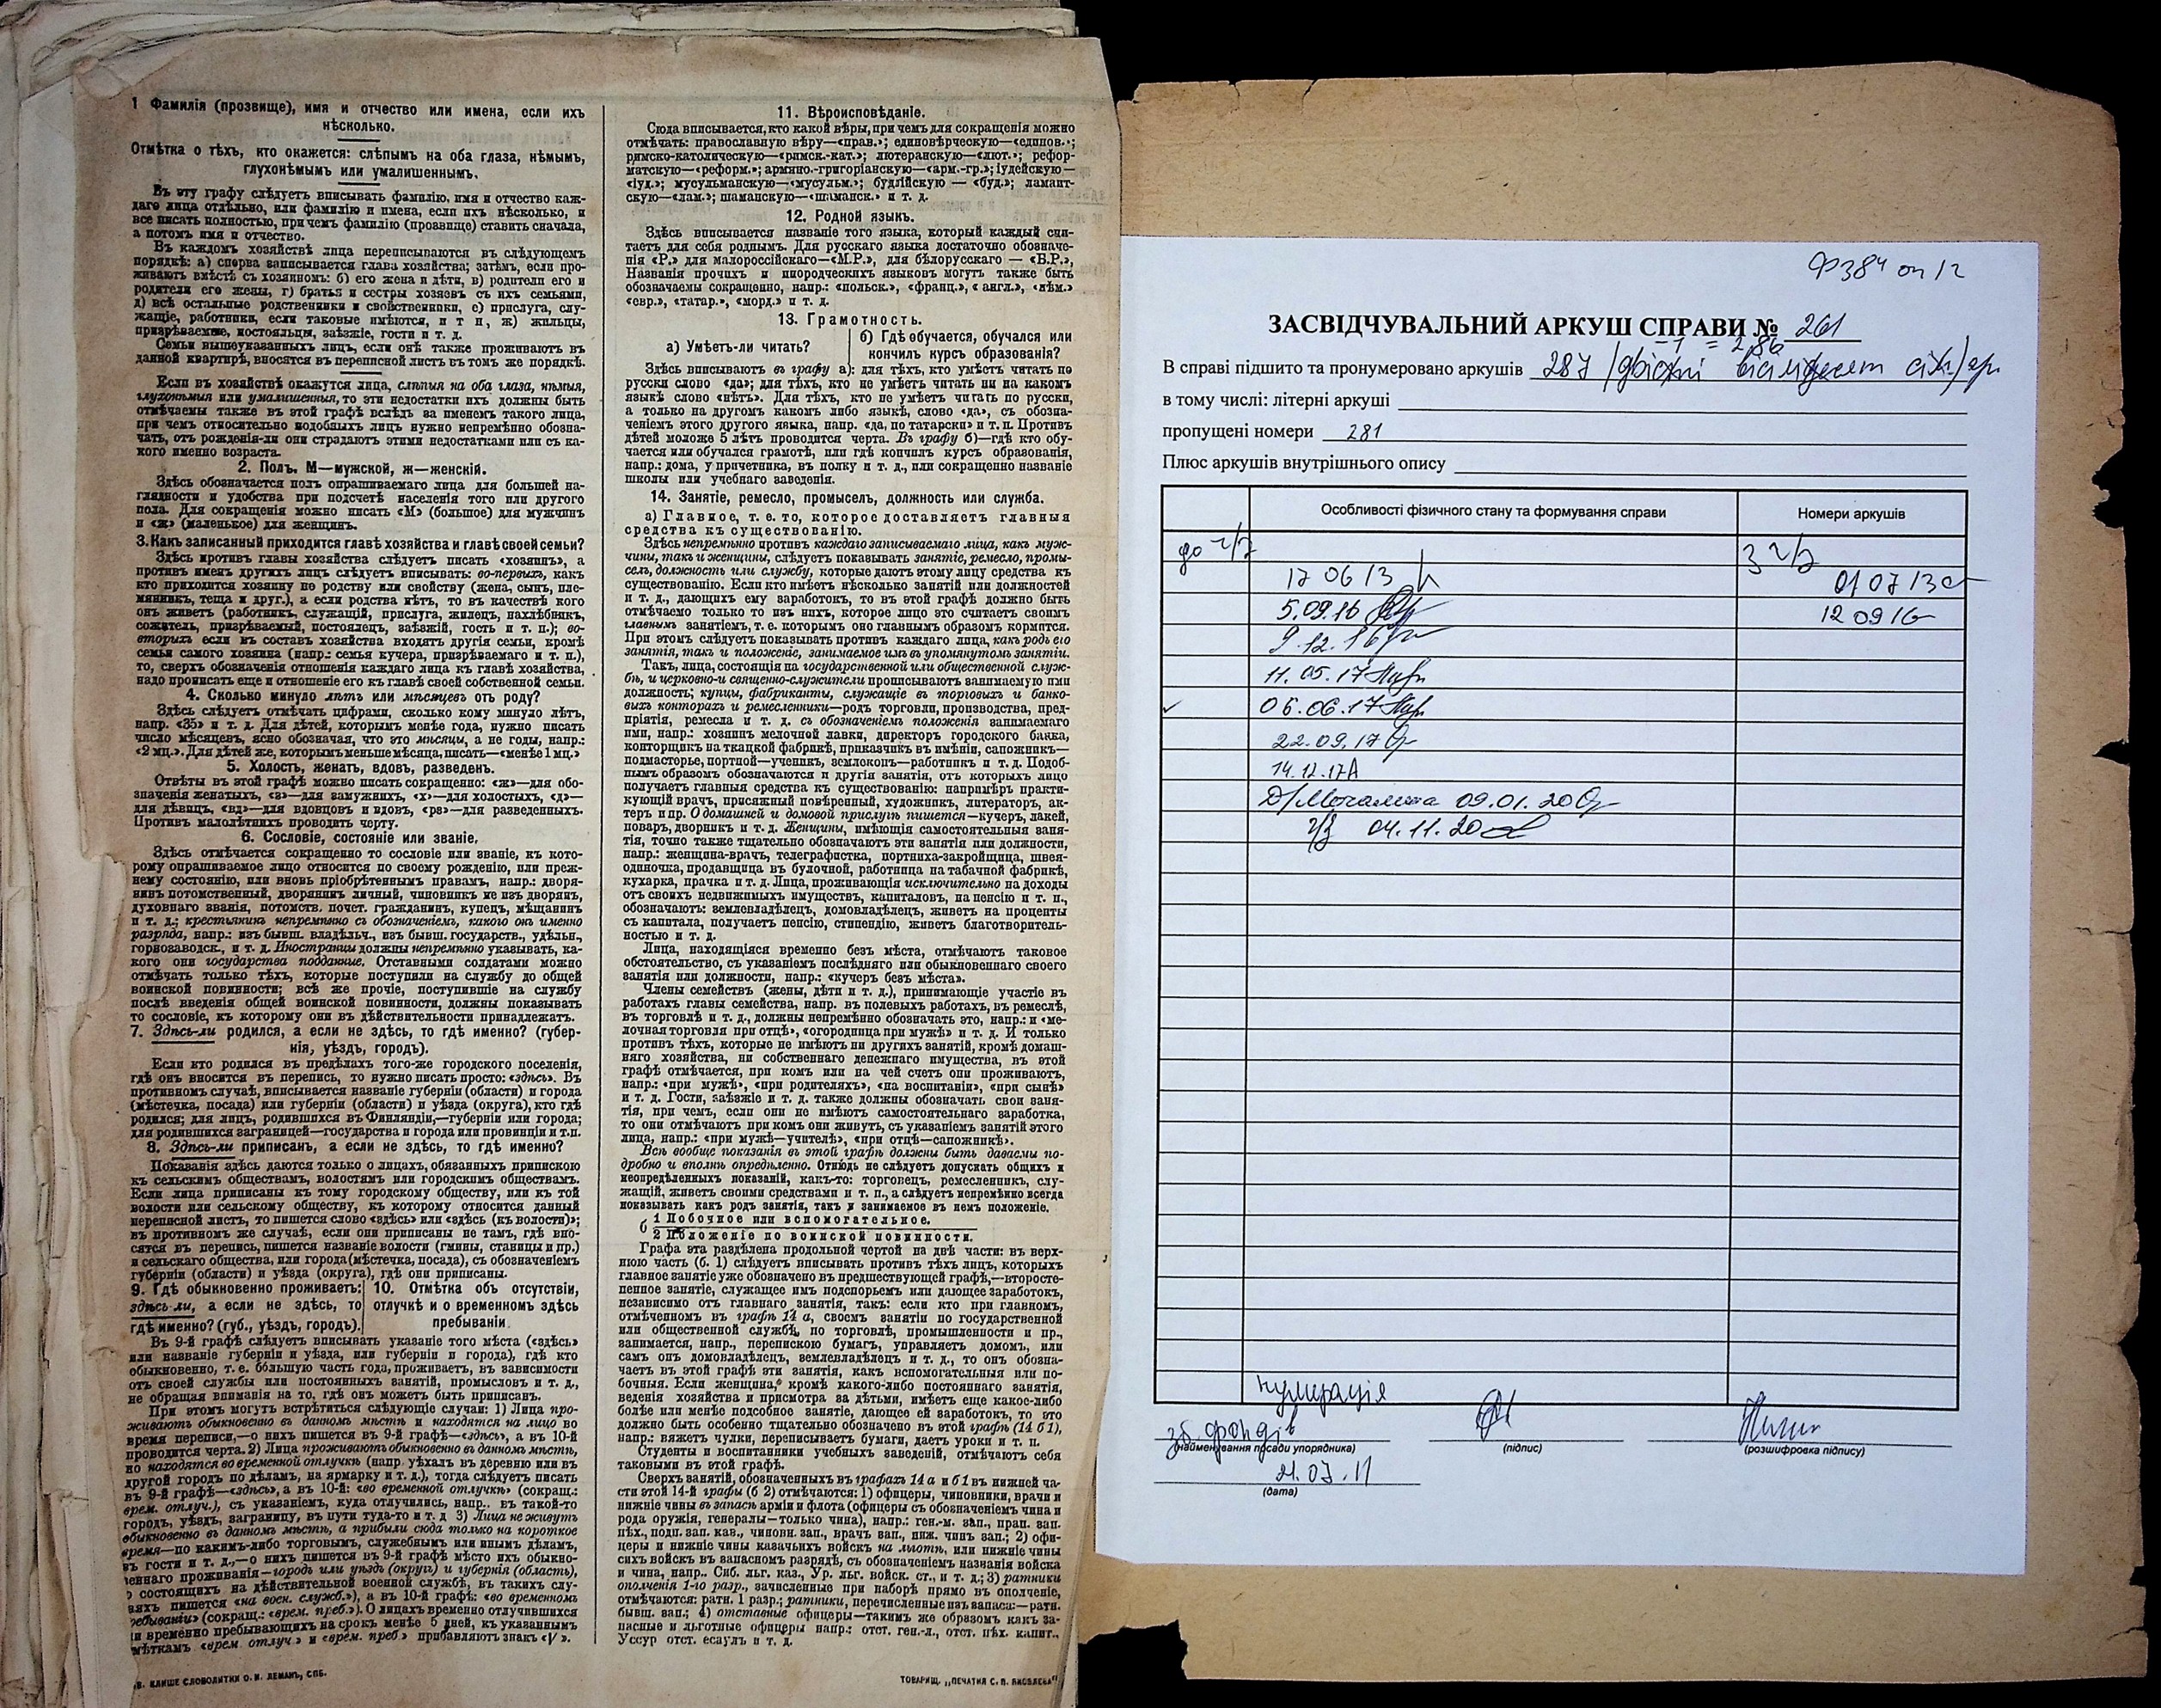 1 Фамилія (прозвище), имя и отчество или имена, если ихъ
нѣсколько.
Отмѣтка о тѣхъ, кто окажется: слѣпымъ на оба глаза, нѣмымъ,
глухонѣмымъ или умалишеннымъ.
Въ эту графу слѣдуетъ вписывать фамилію, имя и отчество каж-
даго лица отдѣльно, или фамилію и имена, если ихъ нѣсколько, и
все писать полностью, при чемъ фамилію (прозвище) ставить сначала,
а потомъ имя и отчество.
Въ каждомъ хозяйствѣ лица переписываются въ слѣдующемъ
порядкѣ: а) сперва записывается глава хозяйства; затѣмъ, если про-
живаютъ вмѣстѣ съ хозяиномъ: б) его жена и дѣти, в) родители его и
родители его жены, г) братья и сестры хозяевъ съ ихъ семьями,
д) всѣ остальные родственники и свойственники, е) прислуга, слу-
жащіе, работники, если таковые имѣются, и т п, ж) жильцы,
призрѣваемые, постояльцы, заѣзжіе, гости и т. д.
Семьи вышеуказанныхъ лицъ, если онѣ также проживаютъ въ
данной квартирѣ, вносятся въ переписной листъ въ томъ же порядкѣ.
Если въ хозяйствѣ окажутся лица, слѣпыя на оба глаза, нѣмыя,
глухонѣмыя или умалишенныя, то эти недостатки ихъ должны быть
отмѣчаемы также въ этой графѣ вслѣдъ за именемъ такого лица,
при чемъ относительно подобныхъ лицъ нужно непремѣнно обозна-
чать, отъ рожденія-ли они страдаютъ этими недостатками или съ ка-
кого именно возраста.
2. Полъ. М—мужской, ж—женскій.
Здѣсь обозначается полъ опрашиваемаго лица для большей на-
глядности и удобства при подсчетѣ населенія того или другого
пола. Для сокращенія можно писать «М» (большое) для мужчинъ
и «ж» (маленькое) для женщинъ.
3. Какъ записанный приходится главѣ хозяйства и главѣ своей семьи?
Здѣсь противъ главы хозяйства слѣдуетъ писать «хозяинъ», а
противъ именъ другихъ лицъ слѣдуетъ вписывать: во-первыхъ, какъ
кто приходится хозяину по родству или свойству (жена, сынъ, пле-
мянникъ, теща и друг.), а если родства нѣтъ, то въ качествѣ кого
онъ живетъ (работникъ, служащій, прислуга, жилецъ, нахлѣбникъ,
сожитель, призрѣваемый, постоялецъ, заѣзжій, гость и т. п.); во-
вторыхъ если въ составъ хозяйства входятъ другія семьи, кромѣ
семьи самого хозяина (напр.: семья кучера, призрѣваемаго и т. п.),
то, сверхъ обозначенія отношенія каждаго лица къ главѣ хозяйства,
надо прописать еще и отношеніе его къ главѣ своей собственной семьи.
4. Сколько минуло лѣтъ или мѣсяцевъ отъ роду?
Здѣсь слѣдуетъ отмѣчать цифрами, сколько кому минуло лѣтъ,
напр. «35» и т. д. Для дѣтей, которымъ менѣе года, нужно писать
число мѣсяцевъ, ясно обозначая, что это мѣсяцы, а не годы, напр.:
«2 мц.». Для дѣтей же, которымъ меньше мѣсяца, писать—«менѣе 1 мц.»
5. Холостъ, женатъ, вдовъ, разведенъ.
Отвѣты въ этой графѣ можно писать сокращенно: «ж»—для обо-
значенія женатыхъ, «з»—для замужнихъ, «х»—для холостыхъ, «д»—
для дѣвицъ, «вд»—для вдовцовъ и вдовъ, «рв»—для разведенныхъ.
Противъ малолѣтнихъ проводить черту.
6. Сословіе, состояніе или званіе.
Здѣсь отмѣчается сокращенно то сословіе или званіе, къ кото-
рому опрашиваемое лицо относится по своему рожденію, или преж-
нему состоянію, или вновь пріобрѣтеннымъ правамъ, напр.: дворя-
нинъ потомственный, дворянинъ личный, чиновникъ не изъ дворянъ,
духовнаго званія, потомств. почет. гражданинъ, купецъ, мѣщанинъ
и т. д.; крестьянинъ непремѣнно съ обозначеніемъ, какого онъ именно
разряда, напр.: изъ бывш. владѣльч., изъ бывш. государств., удѣльн.,
горнозаводск., и т. д. Иностранцы должны непремѣнно указывать, ка-
кого они государства подданные. Отставными солдатами можно
отмѣчать только тѣхъ, которые поступили на службу до общей
воинской повинности; всѣ же прочіе, поступившіе на службу
послѣ введенія общей воинской повинности, должны показывать
то сословіе, къ которому они въ дѣйствительности принадлежатъ.
7. Здѣсь-ли родился, а если не здѣсь, то гдѣ именно? (губер-
нія, уѣздъ, городъ).
Если кто родился въ предѣлахъ того-же городского поселенія,
гдѣ онъ вносится въ перепись, то нужно писать просто: «здѣсь». Въ
противномъ случаѣ, вписывается названіе губерніи (области) и города
(мѣстечка, посада) или губерніи (области) и уѣзда (округа), кто гдѣ
родился; для лицъ, родившихся въ Финляндіи,—губерніи или города;
для родившихся заграницей—государства и города или провинціи и т.п.
8. Здѣсь-ли приписанъ, а если не здѣсь, то гдѣ именно?
Показанія здѣсь даются только о лицахъ, обязанныхъ припискою
къ сельскимъ обществамъ, волостямъ или городскимъ обществамъ.
Если лица приписаны къ тому городскому обществу, или къ той
волости или сельскому обществу, къ которому относится данный
переписной листъ, то пишется слово «здѣсь» или «здѣсь (къ волости)»;
въ противномъ же случаѣ, если они приписаны не тамъ, гдѣ вно-
сятся въ перепись, пишется названіе волости (гмины, станицы и пр.)
и сельскаго общества, или города (мѣстечка, посада), съ обозначеніемъ
губерніи (области) и уѣзда (округа), гдѣ они приписаны.
9. Гдѣ обыкновенно проживаетъ:
здѣсь-ли, а если не здѣсь, то
гдѣ именно? (губ., уѣздъ, городъ).
10. Отмѣтка объ отсутствіи,
отлучкѣ и о временномъ здѣсь
пребываніи
Въ 9-й графѣ слѣдуетъ вписывать указаніе того мѣста («здѣсь»
или названіе губерніи и уѣзда, или губерніи и города), гдѣ кто
обыкновенно, т. е. бо́льшую часть года, проживаетъ, въ зависимости
отъ своей службы или постоянныхъ занятій, промысловъ и т. д.,
не обращая вниманія на то, гдѣ онъ можетъ быть приписанъ.
При этомъ могутъ встрѣтиться слѣдующіе случаи: 1) Лица про-
живаютъ обыкновенно въ данномъ мѣстѣ и находятся на лицо во
время переписи,—о нихъ пишется въ 9-й графѣ—«здѣсь», а въ 10-й
проводится черта. 2) Лица проживаютъ обыкновенно въ данномъ мѣстѣ,
но находятся во временной отлучкѣ (напр уѣхалъ въ деревню или въ
другой городъ по дѣламъ, на ярмарку и т. д.), тогда слѣдуетъ писать
въ 9-й графѣ—«здѣсь», а въ 10-й: «во временной отлучкѣ» (сокращ.:
врем. отлуч.), съ указаніемъ, куда отлучились, напр.. въ такой-то
городъ, уѣздъ, заграницу, въ пути туда-то и т. д 3) Лица не живутъ
обыкновенно въ данномъ мѣстѣ, а прибыли сюда только на короткое
время—по какимъ-либо торговымъ, служебнымъ или инымъ дѣламъ,
въ гости и т. д.,—о нихъ пишется въ 9-й графѣ мѣсто ихъ обыкно-
веннаго проживанія—городъ или уѣздъ (округъ) и губернія (область),
о состоящихъ на дѣйствительной военной службѣ, въ такихъ слу-
аяхъ пишется «на воен. служб.»), а въ 10-й графѣ: «во временномъ
ребываніи» (сокращ.: «врем. преб.»). О лицахъ временно отлучившихся
и временно пребывающихъ на срокъ менѣе 5 дней, къ указаннымъ
мѣткамъ «врем. отлуч.» и «врем. преб.» прибавляютъ знакъ «V».
В. КЛИШЕ СЛОВОЛИТНИ О. И. ЛЕМАНЪ, СПБ.
11. Вѣроисповѣданіе.
Сюда вписывается, кто какой вѣры, при чемъ для сокращенія можно
отмѣчать: православную вѣру—«прав.»; единовѣрческую—«единов.»;
римско-католическую—«римск.-кат.»; лютеранскую—«лют.»; рефор-
матскую—«реформ.»; армяно.-григоріанскую—«арм.-гр.»; іудейскую—
«іуд.»; мусульманскую—«мусульм.»; буддійскую — «буд.»; ламаит-
скую—«лам.»; шаманскую—«шаманск.» и т. д.
12. Родной языкъ.
Здѣсь вписывается названіе того языка, который каждый счи-
таетъ для себя роднымъ. Для русскаго языка достаточно обозначе-
нія «Р.» для малороссійскаго—«М.Р.», для бѣлорусскаго — «Б.Р.»,
Названія прочихъ и инородческихъ языковъ могутъ также быть
обозначаемы сокращенно, напр.: «польск.», «франц.», « англ.», «нѣм.»
«евр.», «татар.», «морд.» и т. д.
13. Грамотность.
а) Умѣетъ-ли читать?
б) Гдѣ обучается, обучался или
кончилъ курсъ образованія?
Здѣсь вписываютъ въ графу а): для тѣхъ, кто умѣетъ читать по
русски слово «да»; для тѣхъ, кто не умѣетъ читать ни на какомъ
языкѣ слово «нѣтъ». Для тѣхъ, кто не умѣетъ читать по русски,
а только на другомъ какомъ либо языкѣ, слово «да», съ обозна-
ченіемъ этого другого языка, напр. «да, по татарски» и т. п. Противъ
дѣтей моложе 5 лѣтъ проводится черта. Въ графу б)—гдѣ кто обу-
чается или обучался грамотѣ, или гдѣ кончилъ курсъ образованія,
напр.: дома, у причетника, въ полку и т. д., или сокращенно названіе
школы или учебнаго заведенія.
14. Занятіе, ремесло, промыселъ, должность или служба.
а) Главное, т. е. то, которое доставляетъ главныя
средства къ существованію.
Здѣсь непремѣнно противъ каждаго записываемаго лица, какъ муж-
чины, такъ и женщины, слѣдуетъ показывать занятіе, ремесло, промы-
селъ, должность или службу, которые даютъ этому лицу средства къ
существованію. Если кто имѣетъ нѣсколько занятій или должностей
и т. д., дающихъ ему заработокъ, то въ этой графѣ должно быть
отмѣчаемо только то изъ нихъ, которое лицо это считаетъ своимъ
главнымъ занятіемъ, т. е. которымъ оно главнымъ образомъ кормится.
При этомъ слѣдуетъ показывать противъ каждаго лица, какъ родъ его
занятія, такъ и положеніе, занимаемое имъ въ упомянутомъ занятіи.
Такъ, лица, состоящія на государственной или общественной служ-
бѣ, и церковно-и священно-служители прописываютъ занимаемую ими
должность; купцы, фабриканты, служащіе въ торговыхъ и банко-
выхъ конторахъ и ремесленники—родъ торговли, производства, пред-
пріятія, ремесла и т. д. съ обозначеніемъ положенія занимаемаго
ими, напр.: хозяинъ мелочной лавки, директоръ городского банка,
конторщикъ на ткацкой фабрикѣ, приказчикъ въ имѣніи, сапожникъ—
подмастерье, портной—ученикъ, землекопъ—работникъ и т. д. Подоб-
нымъ образомъ обозначаются и другія занятія, отъ которыхъ лицо
получаетъ главныя средства къ существованію: напримѣръ практи-
кующій врачъ, присяжный повѣренный, художникъ, литераторъ, ак-
теръ и пр. О домашней и домовой прислугѣ пишется—кучеръ, лакей,
поваръ, дворникъ и т. д. Женщины, имѣющія самостоятельныя заня-
тія, точно также тщательно обозначаютъ эти занятія или должности,
напр.: женщина-врачъ, телеграфистка, портниха-закройщица, швея-
одиночка, продавщица въ булочной, работница на табачной фабрикѣ,
кухарка, прачка и т. д. Лица, проживающія исключительно на доходы
отъ своихъ недвижимыхъ имуществъ, капиталовъ, на пенсію и т. п.,
обозначаютъ: землевладѣлецъ, домовладѣлецъ, живетъ на проценты
съ капитала, получаетъ пенсію, стипендію, живетъ благотворитель-
ностью и т. д.
Лица, находящіяся временно безъ мѣста, отмѣчаютъ таковое
обстоятельство, съ указаніемъ послѣдняго или обыкновеннаго своего
занятія или должности, напр.: «кучеръ безъ мѣста».
Члены семействъ (жены, дѣти и т. д.), принимающіе участіе въ
работахъ главы семейства, напр. въ полевыхъ работахъ, въ ремеслѣ,
въ торговлѣ и т. д., должны непремѣнно обозначать это, напр.: и «ме-
лочная торговля при отцѣ», «огородница при мужѣ» и т. д. И только
противъ тѣхъ, которые не имѣютъ ни другихъ занятій, кромѣ домаш-
няго хозяйства, ни собственнаго денежнаго имущества, въ этой
графѣ отмѣчается, при комъ или на чей счетъ они проживаютъ,
напр.: «при мужѣ», «при родителяхъ», «на воспитаніи», «при сынѣ»
и т. д. Гости, заѣзжіе и т. д. также должны обозначать свои заня-
тія, при чемъ, если они не имѣютъ самостоятельнаго заработка,
то они отмѣчаютъ при комъ они живутъ, съ указаніемъ занятій этого
лица, напр.: «при мужѣ—учителѣ», «при отцѣ—сапожникѣ».
Всѣ вообще показанія въ этой графѣ должны быть даваемы по-
дробно и вполнѣ опредѣленно. Отнюдь не слѣдуетъ допускать общихъ и
неопредѣленныхъ показаній, какъ-то: торговецъ, ремесленникъ, слу-
жащій, живетъ своими средствами и т. п., а слѣдуетъ непремѣнно всегда
показывать какъ родъ занятія, такъ и занимаемое въ немъ положеніе.
б 1 Побочное или вспомогательное.
2 Положеніе по воинской повинности.
Графа эта раздѣлена продольной чертой на двѣ части: въ верх-
нюю часть (б. 1) слѣдуетъ вписывать противъ тѣхъ лицъ, которыхъ
главное занятіе уже обозначено въ предшествующей графѣ,—второсте-
пенное занятіе, служащее имъ подспорьемъ или дающее заработокъ,
независимо отъ главнаго занятія, такъ: если кто при главномъ,
отмѣченномъ въ графѣ 14 а, своемъ занятіи по государственной
или общественной службѣ, по торговлѣ, промышленности и пр.,
занимается, напр., перепискою бумагъ, управляетъ домомъ, или
самъ онъ домовладѣлецъ, землевладѣлецъ и т. д., то онъ обозна-
чаетъ въ этой графѣ эти занятія, какъ вспомогательныя или по-
бочныя. Если женщина, кромѣ какого-либо постояннаго занятія,
веденія хозяйства и присмотра за дѣтьми, имѣетъ еще какое-либо
болѣе или менѣе подсобное занятіе, дающее ей заработокъ, то это
должно быть особенно тщательно обозначено въ этой графѣ (14 б 1),
напр.: вяжетъ чулки, переписываетъ бумаги, даетъ уроки и т. п.
Студенты и воспитанники учебныхъ заведеній, отмѣчаютъ себя
таковыми въ этой графѣ.
Сверхъ занятій, обозначенныхъ въ графахъ 14 а и б 1 въ нижней ча-
сти этой 14-й графы (б 2) отмѣчаются: 1) офицеры, чиновники, врачи и
нижніе чины въ запасѣ арміи и флота (офицеры съ обозначеніемъ чина и
рода оружія, генералы—только чина), напр.: ген.-м. зап., прап. зап.
пѣх., подп. зап. кав., чиновн. зап., врачъ зап., ниж. чинъ зап.; 2) офи-
церы и нижніе чины казачьихъ войскъ на льготѣ, или нижніе чины
сихъ войскъ въ запасномъ разрядѣ, съ обозначеніемъ названія войска
и чина, напр.. Сиб. льг. каз., Ур. льг. войск. ст., и т. д.; 3) ратники
ополченія 1-го разр., зачисленные при наборѣ прямо въ ополченіе,
отмѣчаются: ратн. 1 разр.; ратники, перечисленные изъ запаса:—ратн.
бывш. зап.; 4) отставные офицеры—такимъ же образомъ какъ за-
пасные и льготные офицеры напр.: отст. ген.-л., отст. пѣх. капит.,
Уссур отст. есаулъ и т. д.
ТОВАРИЩ. „ПЕЧАТНЯ С. П. ЯКОВЛЕВА"
Ф 384 оп 12
ЗАСВІДЧУВАЛЬНИЙ АРКУШ СПРАВИ № 261
- 1 = 286
В справі підшито та пронумеровано аркушів 287 /двісті вісімдесят сім/ арк
в тому числі: літерні аркуші
пропущені номери 281
Плюс аркушів внутрішнього опису
Особливості фізичного стану та формування справи
Номери аркушів
до ч/з
з ч/з
17 06 13
01 07 13
5.09.16
12 09 16
9.12.16
11.05.17
06.06.17
22.09.17
14.12.17
09.01.20
ч/з 04.11.20
нумерація
зб. фондів
(найменування посади упорядника)
(підпис)
(розшифровка підпису)
21.07.11
(дата)